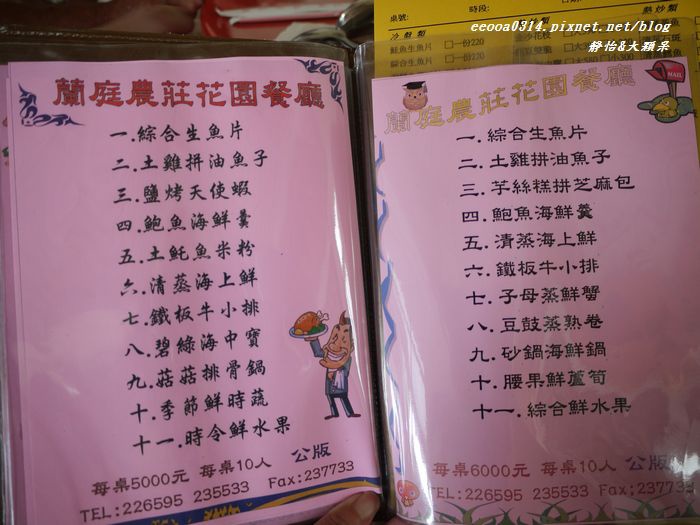 eeooa0314.pixnet.net/blog
靜怡&大顆呆
桌號:
時段:
冷盤類
熱炒類
鮭魚生魚片 □一份220
綜合生魚片 □一份220
蘭庭農莊花園餐廳
一.綜合生魚片
二.土雞拼油魚子
三.鹽烤天使蝦
四.鮑魚海鮮羹
五.土魠魚米粉
六.清蒸海上鮮
七.鐵板牛小排
八.碧綠海中寶
九.菇菇排骨鍋
十.季節鮮時蔬
十一.時令鮮水果
每桌5000元 每桌10人 公版
TEL:226595 235533 Fax:237733
蘭庭農莊花園餐廳
MAIL
一.綜合生魚片
二.土雞拼油魚子
三.芋絲糕拼芝麻包
四.鮑魚海鮮羹
五.清蒸海上鮮
六.鐵板牛小排
七.子母蒸鮮蟹
八.豆鼓蒸熟卷
九.砂鍋海鮮鍋
十.腰果鮮蘆筍
十一.綜合鮮水果
每桌6000元 每桌10人 公版
TEL:226595 235533 Fax:237733